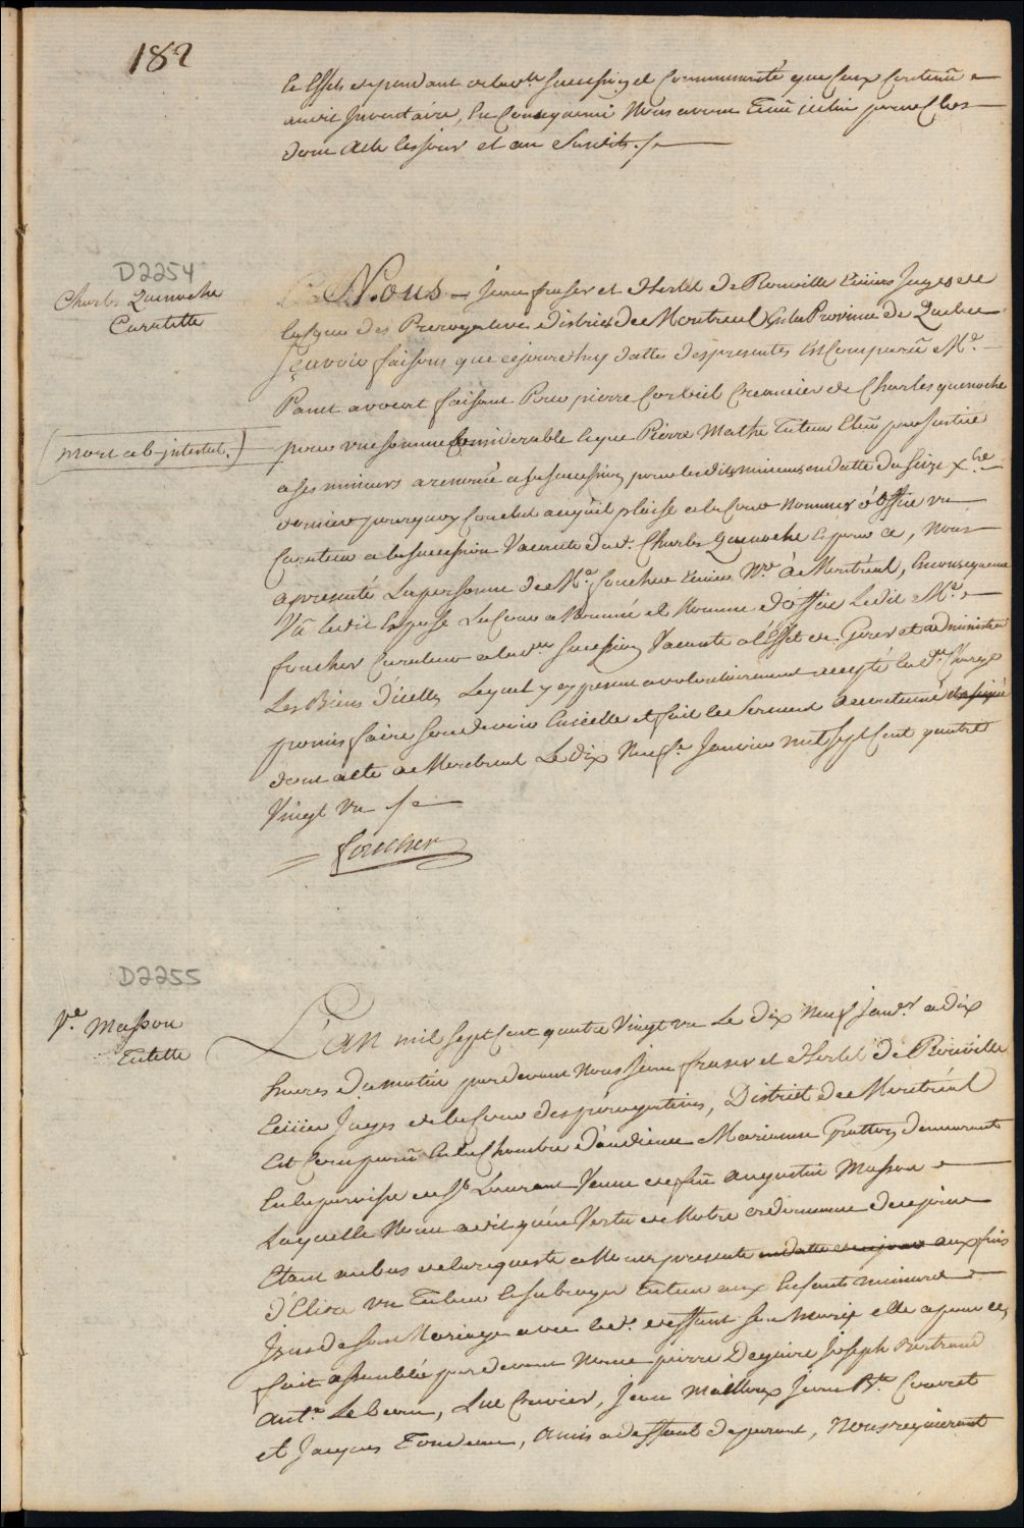 182
le Effets dependant de lad.te Succession et Communauté que Ceux Contenu
audit Inventaire, En Consequence Nous avons Tenu icelui pour Clos
dont Acte les jour et an Susdits ./.
D2254
Charles Quenoche
Curatelle
Nous Jean fraser et Hertel De Rouville Ecuiers Juges de
la Cour des Prerogatives District de Montreal En la Province de Quebec
Sçavoir faisons que cejourd'huy datte des presentes Est Comparu Me.
Panet avocat faisant Pour pierre Corbeil Creancier de Charles quenoche
(mort ab-intestat.)
pour une somme Considerable Et que Pierre Mathe Tuteur Elu par Justice
a Ses mineurs a renoncé a la Succession pour lesdits mineurs en datte du Seize Xbre
dernier pourquoy Conclud a ce qu'il plaise a la Cour Nommer d'Office un
Curateur a la Succession Vacante dud. Charles Quenoche Et pour ce, Nous
a presenté La personne de Me. foucher Ecuier Nre. à Montréal, En consequence
Vû ledit Exposé La Cour a Nommé et Nomme d'Office Ledit Me.
foucher Curateur a lad.te Succession Vacante a l'Effet de Gerer et administrer
Les Biens d'icelle, Lequel y present a volontairement accepté lad.te Charge
promis faire son devoir En icelle et fait le Serment accoutumé et a signé
dont acte a Montreal Le dix Neuf. Janvier mil Sept Cent quatre
Vingt un /.
foucher
D2255
Ve. Masson
Tutelle
L'an mil Sept Cent quatre Vingt un Le dix Neuf Janvr. a dix
heures du matin pardevant Nous Jean fraser et Hertel De Rouville
Ecuiers Juges de la Cour des prérogatives, District de Montréal
Est Comparu En la Chambre d'audience Marianne Gratton demeurante
En la paroisse de St. Laurent Veuve de feu Augustin Masson
Laquelle Nous a dit qu'en Vertu de Notre ordonnance de ce jour
Etant au bas de la requeste a Nous presentée en datte de ce jour aux fins
d'Elire un Tuteur Et subrogé Tuteur aux Enfants mineurs
Issus de Son Mariage avec led. deffunt Son Mary elle a pour ce,
fait assembler pardevant Nous pierre Deguire Joseph Bertrand
Ante. Lebeau, Luc Cuvier, Jean Mailloux Jean Bte. Couvret
et Jacques Tondreau, Amis a deffaut de parent, Nous requerant